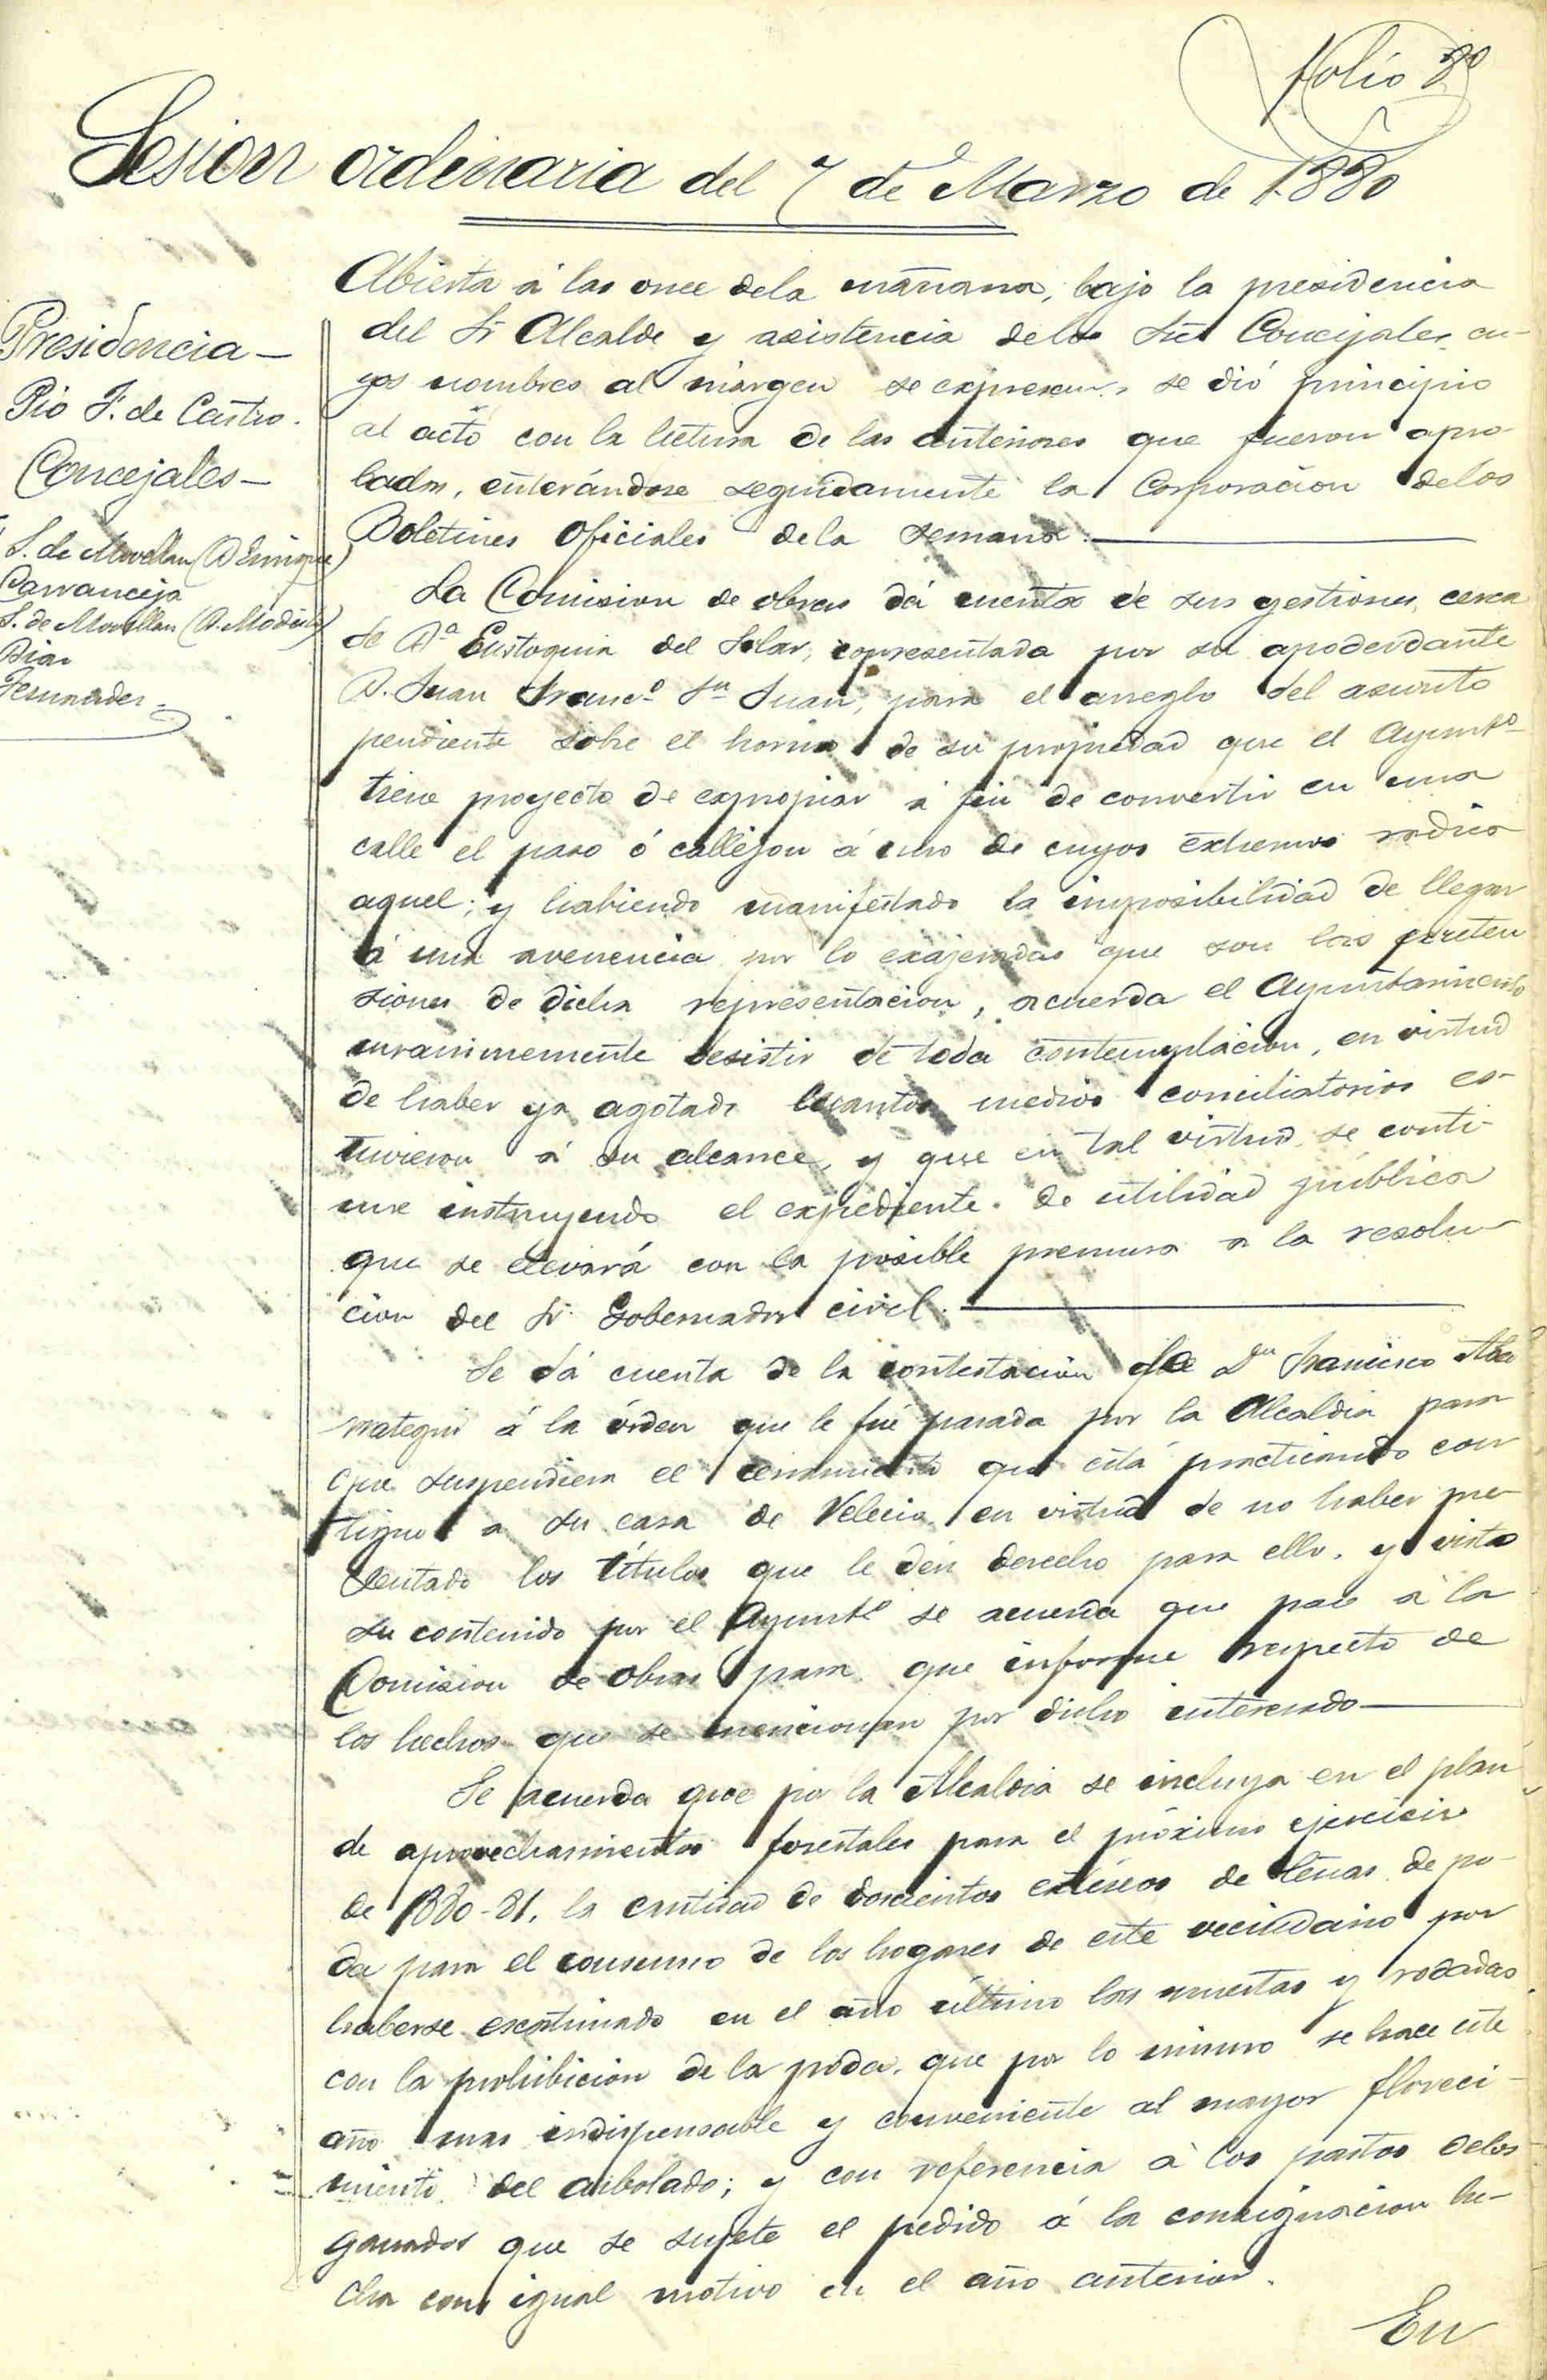 folio 80
Sesion ordinaria del 7 de Marzo de 1880
Presidencia—
Pio F. de Castro.
Concejales—
S. de Movellan (D Enrique)
Carranceja
S. de Movellan (D. Modesto)
Diaz
Fernandez
Abierta á las once dela mañana, bajo la presidencia
del Sr Alcalde y asistencia delos Sres Concejales cu-
yos nombres al márgen se expresan, se dió principio
al acto con la lectura de las anteriores que fueron apro-
badas, enterándose seguidamente la Corporacion delos
Boletines Oficiales dela semana.
La Comision de obras dá cuenta de sus gestiones cerca
de Dª Eustoquia del Solar, representada por su apoderdante
D. Juan Francº Sn Juan, para el arreglo del asunto
pendiente sobre el horno de su propiedad que el Ayuntº
tiene proyecto de expropiar á fin de convertir en una
calle el paso ó callejon á uno de cuyos extremos radica
aquel; y habiendo manifestado la imposibilidad de llegar
á una avenencia por lo exajeradas que son las preten
siones de dicha representacion, acuerda el Ayuntamiento
unanimemente desistir de toda contemplacion, en virtud
de haber ya agotado cuantos medios conciliatorios es-
tuvieron á su alcance, y que en tal virtud se conti-
nue instruyendo el expediente de utilidad pública
que se elevará con la posible premura a la resolu-
cion del Sr Gobernador civil.
Se dá cuenta de la contestacion de Dn Francisco
á la órden que le fué pasada por la Alcaldia para
que suspendiera el cerramiento que está practicando con
tiguo a su casa de Velecio en virtud de no haber pre-
sentado los títulos que le dén derecho para ello, y vista
su contenido por el Ayuntº se acuerda que pase á la
Comision de Obras para que informe respecto de
los hechos que se mencionan por dicho interesado—
Se acuerda que por la Alcaldia se incluya en el plan
de aprovechamientos forestales para el próximo ejercicio
de 1880-81, la cantidad de doscientos estéreos de leñas de po-
da para el consumo de los hogares de este vecindario por
haberse escatimado en el año último las muertas y rodadas
con la prohibicion de la poda, que por lo mismo se hace este
año mas indispensable y conveniente al mayor floreci-
miento del arbolado; y con referencia á los pastos delos
ganados que se sujete el pedido á la consignacion he-
cha con igual motivo en el año anterior.
En